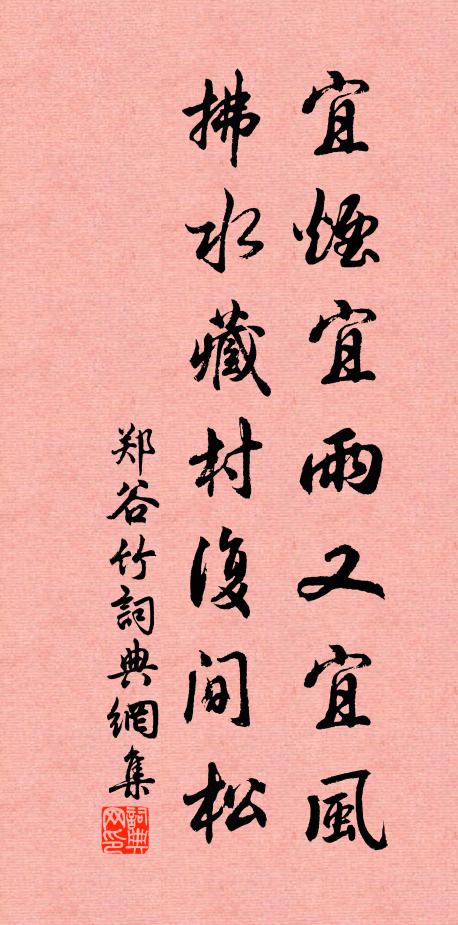 宜煙宜雨又宜風
拂水藏村復间松
郑谷竹詞典網集
詞典网印